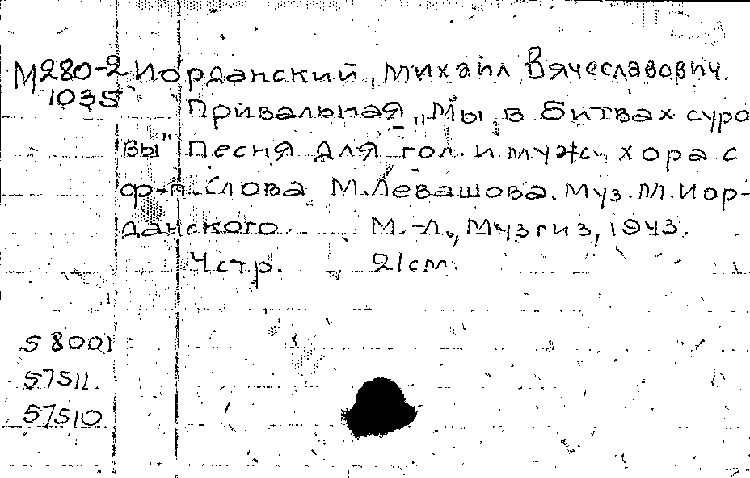 М280-2 Иорданский, Михаил Вячеславович.
1035 Привальная „Мы в битвах суро
вы" Песня для гол. и муж. хора с
ф-п. Слова М. Левашова. Муз. М. Иор-
данского. М.-Л., Музгиз, 1943.
4 стр. 21 см.
58001
57511.
57510